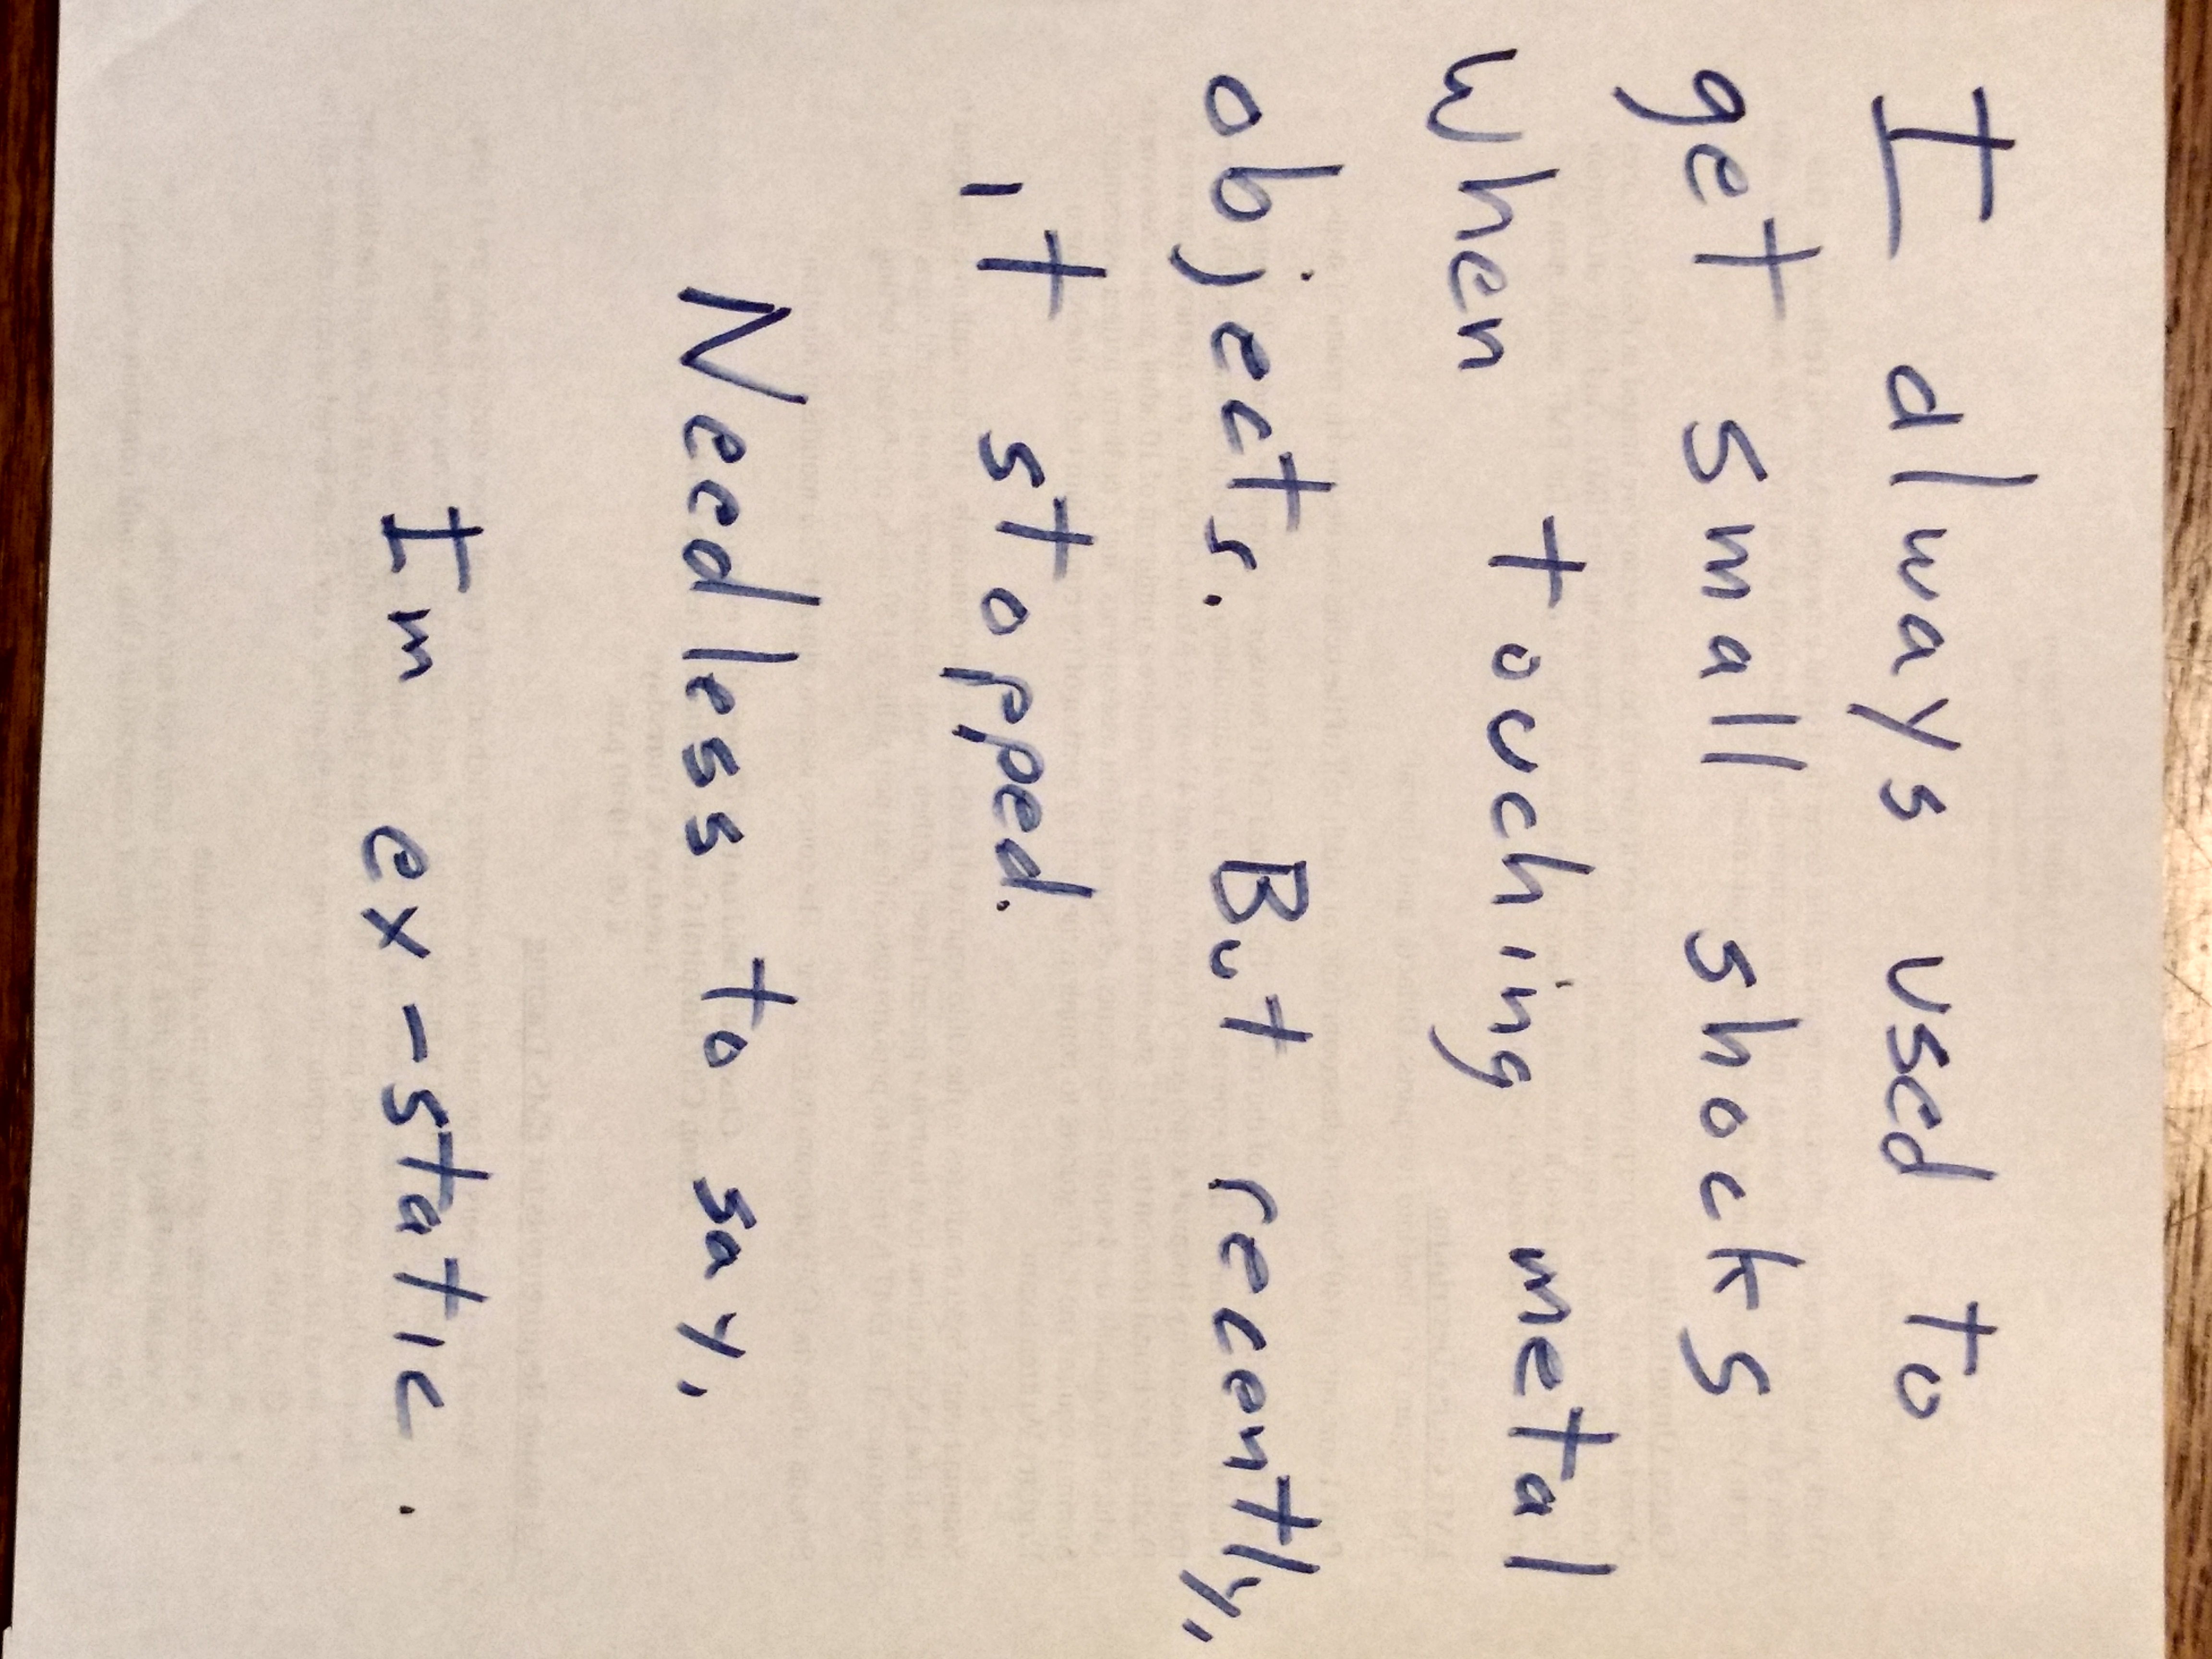 I always used to
get small shocks
when touching metal
objects. But recently,
it stopped.
Needless to say,
Im ex-static.